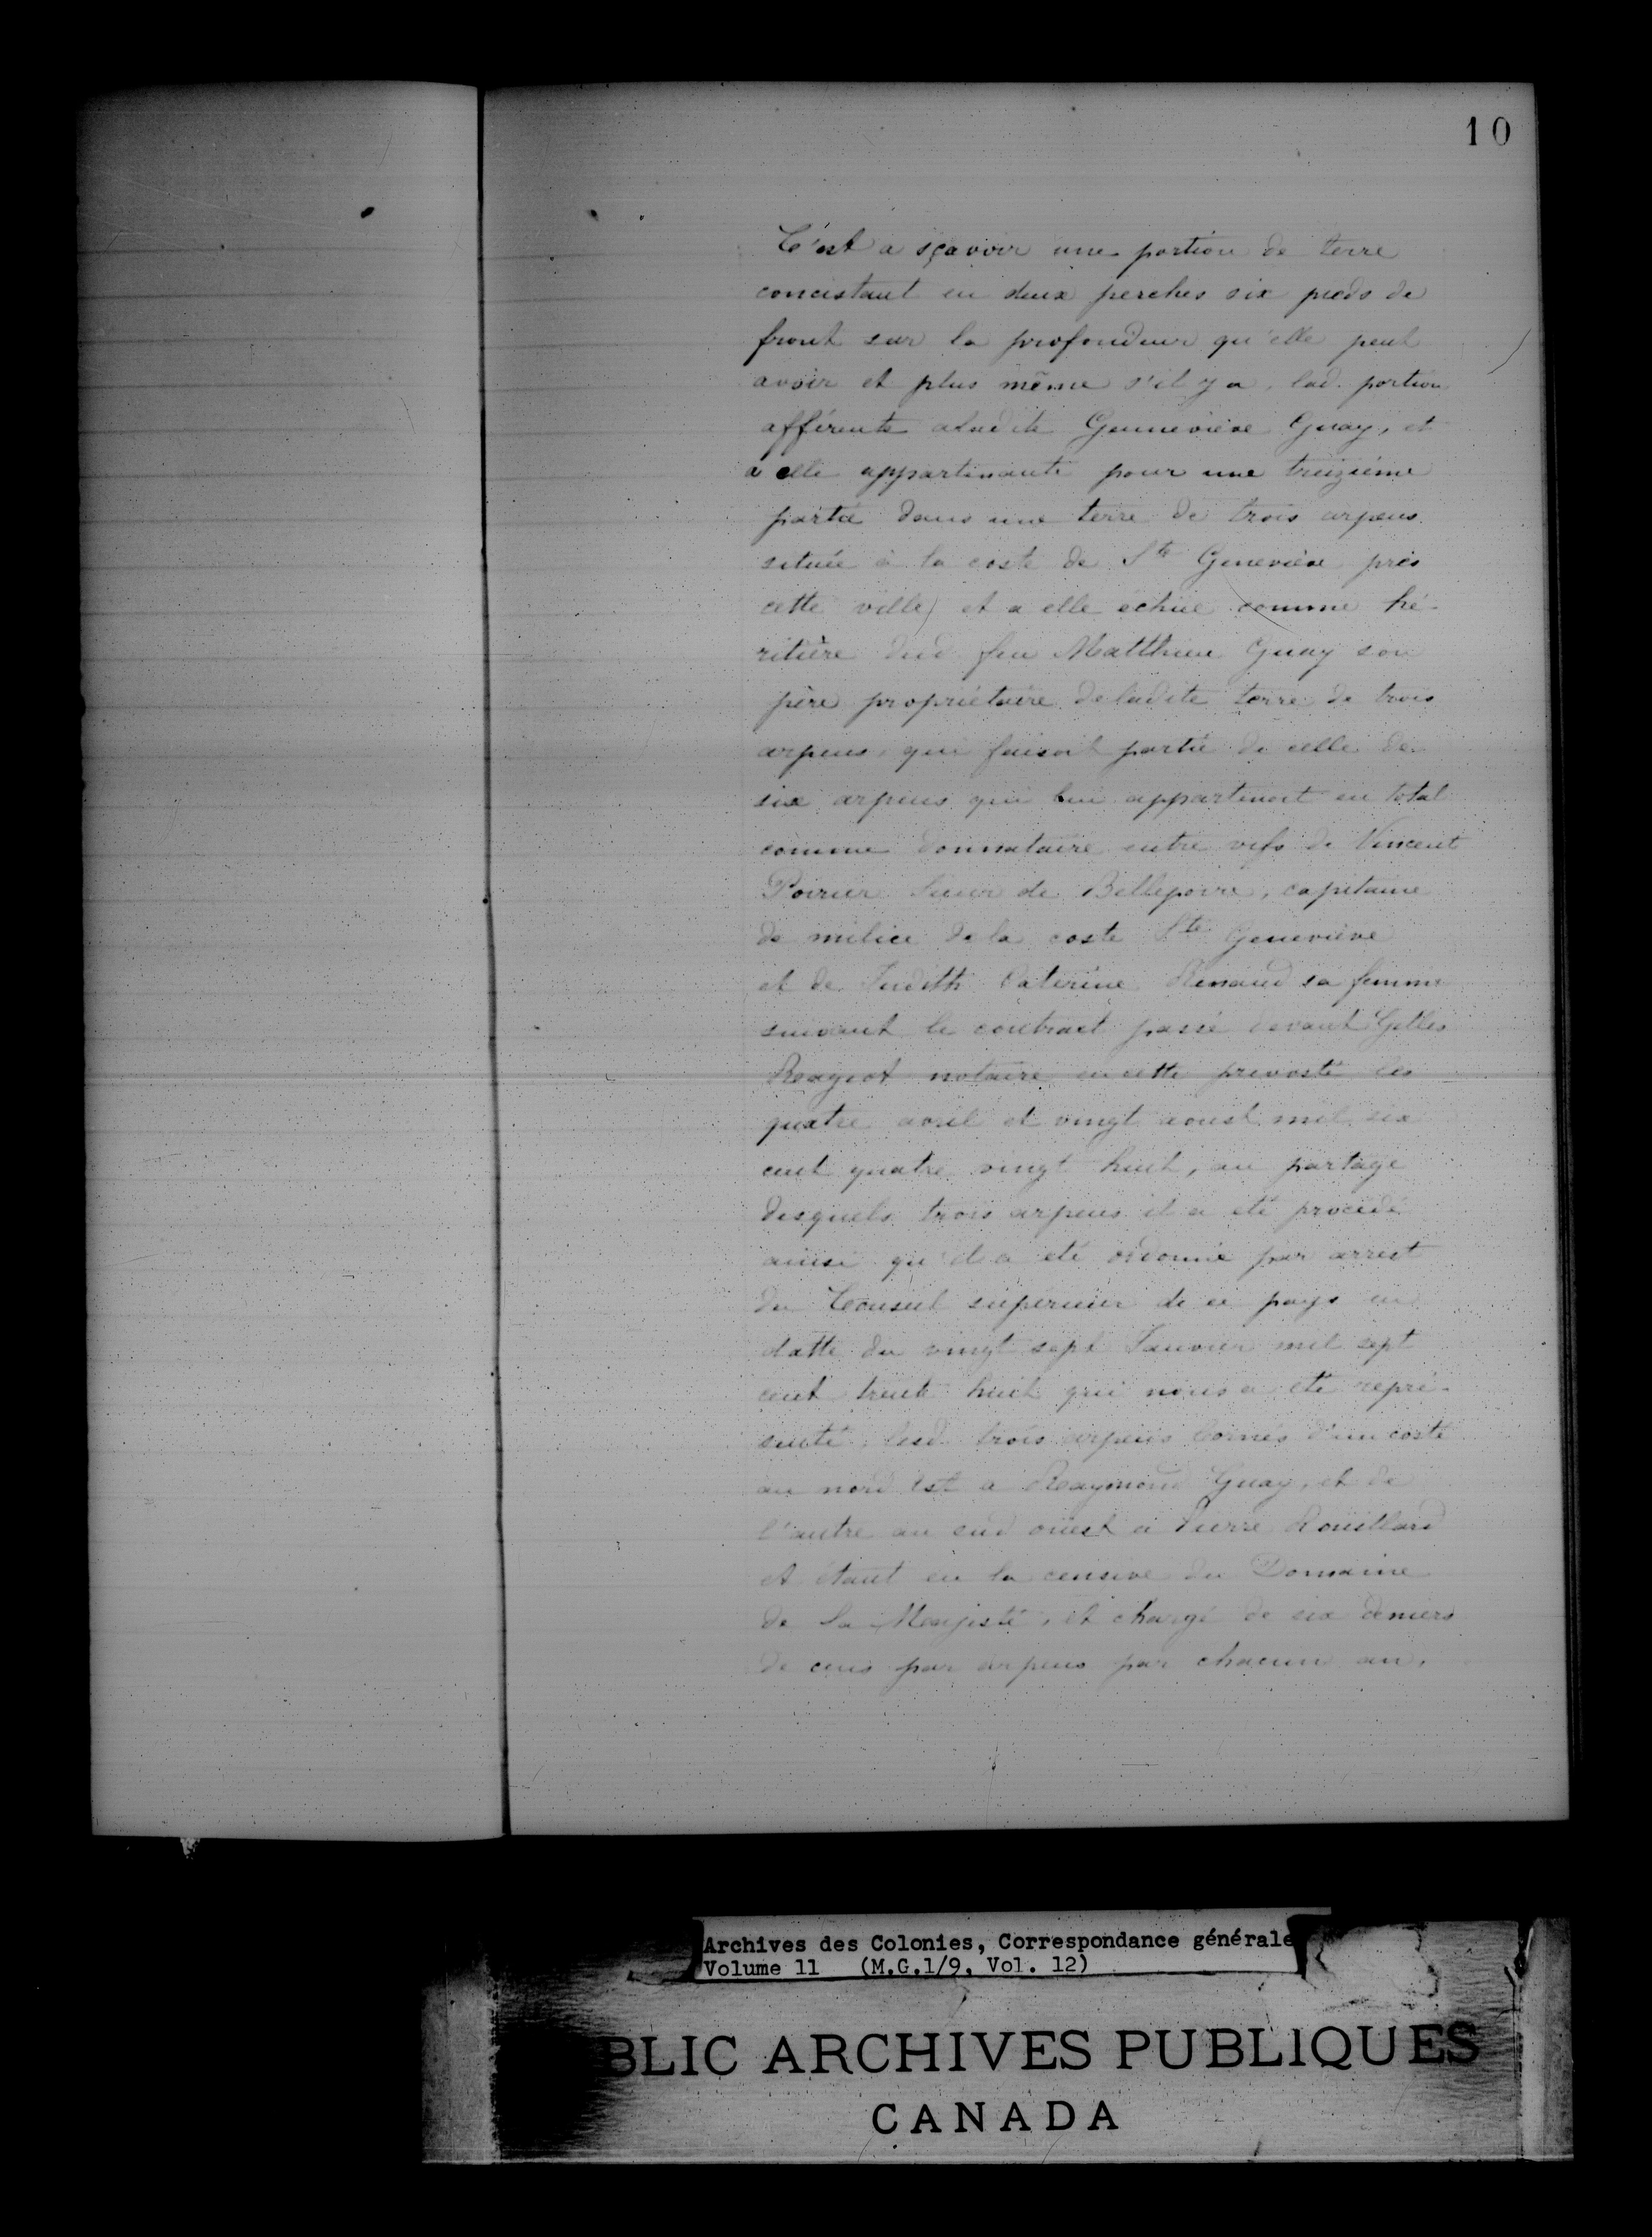 10
C'est a sçavoir une portion de terre
concistant en deux perches six pieds de
front sur la profondeur qu'elle peut
avoir et plus même s'il y a, lad. portion
afférente aladite Genneviève Guay, et
a elle appartenante pour une treizième
partie dans une terre de trois arpens
située à la coste de Ste Geneviève près
cette ville, et a elle echüe comme hé-
ritière dud feu Matthieu Guay son
père propriétaire deladite terre de trois
arpens, qui faisoit partie de celle de
six arpens qui lui appartenoit en total
comme donnataire entre vifs de Vincent
Poirier Sieur de Bellepoire, capitaine
de milice de la coste Ste Geneviève
et de Judith Caterine Renaud sa femme
suivant le contract passé devant Gilles
Rageot notaire en cette prevosté les
quatre avril et vingt aoust mil six
cent quatre vingt huit, au partage
desquels trois arpens il a eté procedé
ainsi qu'il a eté ordonné par arrest
du Conseil superieur de ce pays en
datte du vingt sept Janvier mil sept
cent trente huit qui nous a eté repré-
senté, lesd. trois arpens bornés d'un costé
au nord est a Raymond Guay, et de
l'autre au sud ouest a Pierre Rouillard
et étant en la censive du Domaine
de Sa Majesté, et chargé de six deniers
de cens par arpens par chacun an,
Archives des Colonies, Correspondance générale
Volume 11 (M.G.1/9, Vol. 12)
BLIC ARCHIVES PUBLIQUES
CANADA